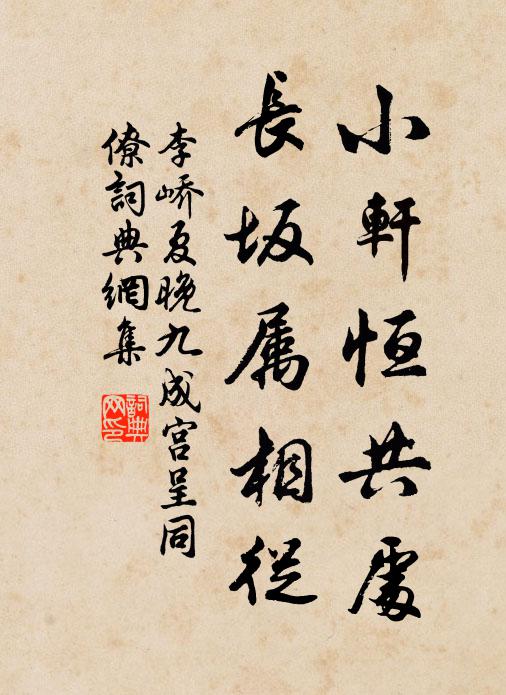 小軒恒共處
長坂属相從
李嶠夏晚九成宮呈同
僚詞典網集
詞典網印